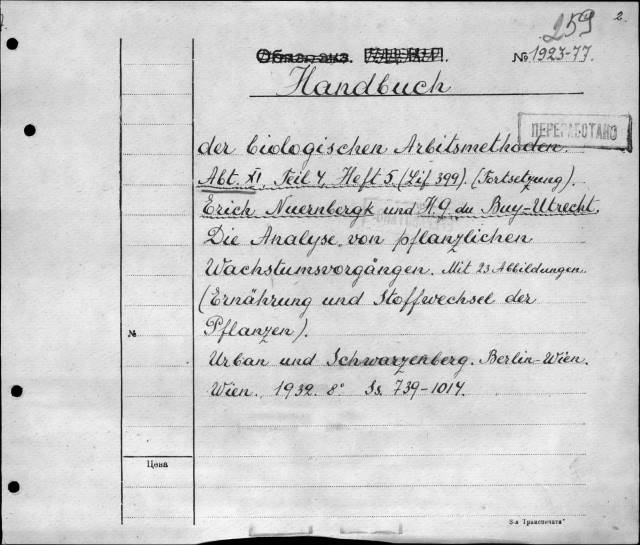 259 2.
№ 1923-77.
Handbuch
ПЕРЕРАБОТАНО
der biologischen Arbitsmethoden.
Abt. XI, Teil 4, Heft 5. (Lif 399). (Fortsetzung).
Erich Nuernbergk und H. G. du Buy-Utrecht.
Die Analyse von pflanzlichen
Wachstumsvorgängen. Mit 23 Abbildungen.
(Ernährung und Stoffwechsel der
Pflanzen).
№
Urban und Schwarzenberg. Berlin-Wien.
Wien. 1932. 8° Ss. 739-1017.
Цена